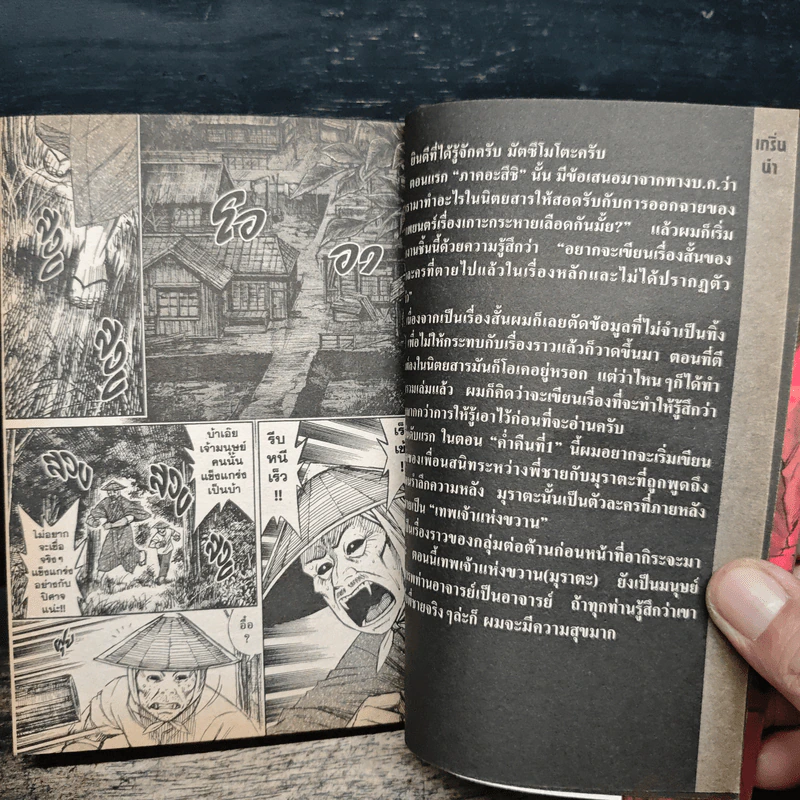 โอ
อา
สวบ
สวบ
บ้าเอ๊ย
เจ้ามนุษย์
คนนั้น
แข็งแกร่ง
เป็นบ้า
ไม่อยาก
จะเชื่อ
จริงๆ
แข็งแกร่ง
อย่างกับ
ปีศาจ
แน่ะ!!
รีบ
หนี
เร็ว
!!
อื๋อ
?
เกริ่น
นำ
ยินดีที่ได้รู้จักครับ มัตซึโมโตะครับ
ตอนแรก "ภาคอะสึชิ" นั้น มีข้อเสนอมาจากทางบ.ก.ว่า
รามาทำอะไรในนิตยสารให้สอดรับกับการออกฉายของ
พยนตร์เรื่องเกาะกระหายเลือดกันมั้ย?" แล้วผมก็เริ่ม
งานชิ้นนี้ด้วยความรู้สึกว่า "อยากจะเขียนเรื่องสั้นของ
ะครที่ตายไปแล้วในเรื่องหลักและไม่ได้ปรากฏตัว
นื่องจากเป็นเรื่องสั้นผมก็เลยตัดข้อมูลที่ไม่จำเป็นทิ้ง
เพื่อไม่ให้กระทบกับเรื่องราวแล้วก็วาดขึ้นมา ตอนที่ตี
ลงในนิตยสารมันก็โอเคอยู่หรอก แต่ว่าไหนๆก็ได้ทำ
รวมเล่มแล้ว ผมก็คิดว่าจะเขียนเรื่องที่จะทำให้รู้สึกว่า
มากกว่าการให้รู้เอาไว้ก่อนที่จะอ่านครับ
ดับแรก ในตอน "ค่ำคืนที่1" นี้ผมอยากจะเริ่มเขียน
ของเพื่อนสนิทระหว่างพี่ชายกับมุราตะที่ถูกพูดถึง
รำลึกความหลัง มุราตะนั้นเป็นตัวละครที่ภายหลัง
ายเป็น "เทพเจ้าแห่งขวาน"
ป็นเรื่องราวของกลุ่มต่อต้านก่อนหน้าที่อากิระจะมา
ตอนนี้เทพเจ้าแห่งขวาน(มุราตะ) ยังเป็นมนุษย์
ท่านอาจารย์เป็นอาจารย์ ถ้าทุกท่านรู้สึกว่าเขา
พี่ชายจริงๆล่ะก็ ผมจะมีความสุขมาก